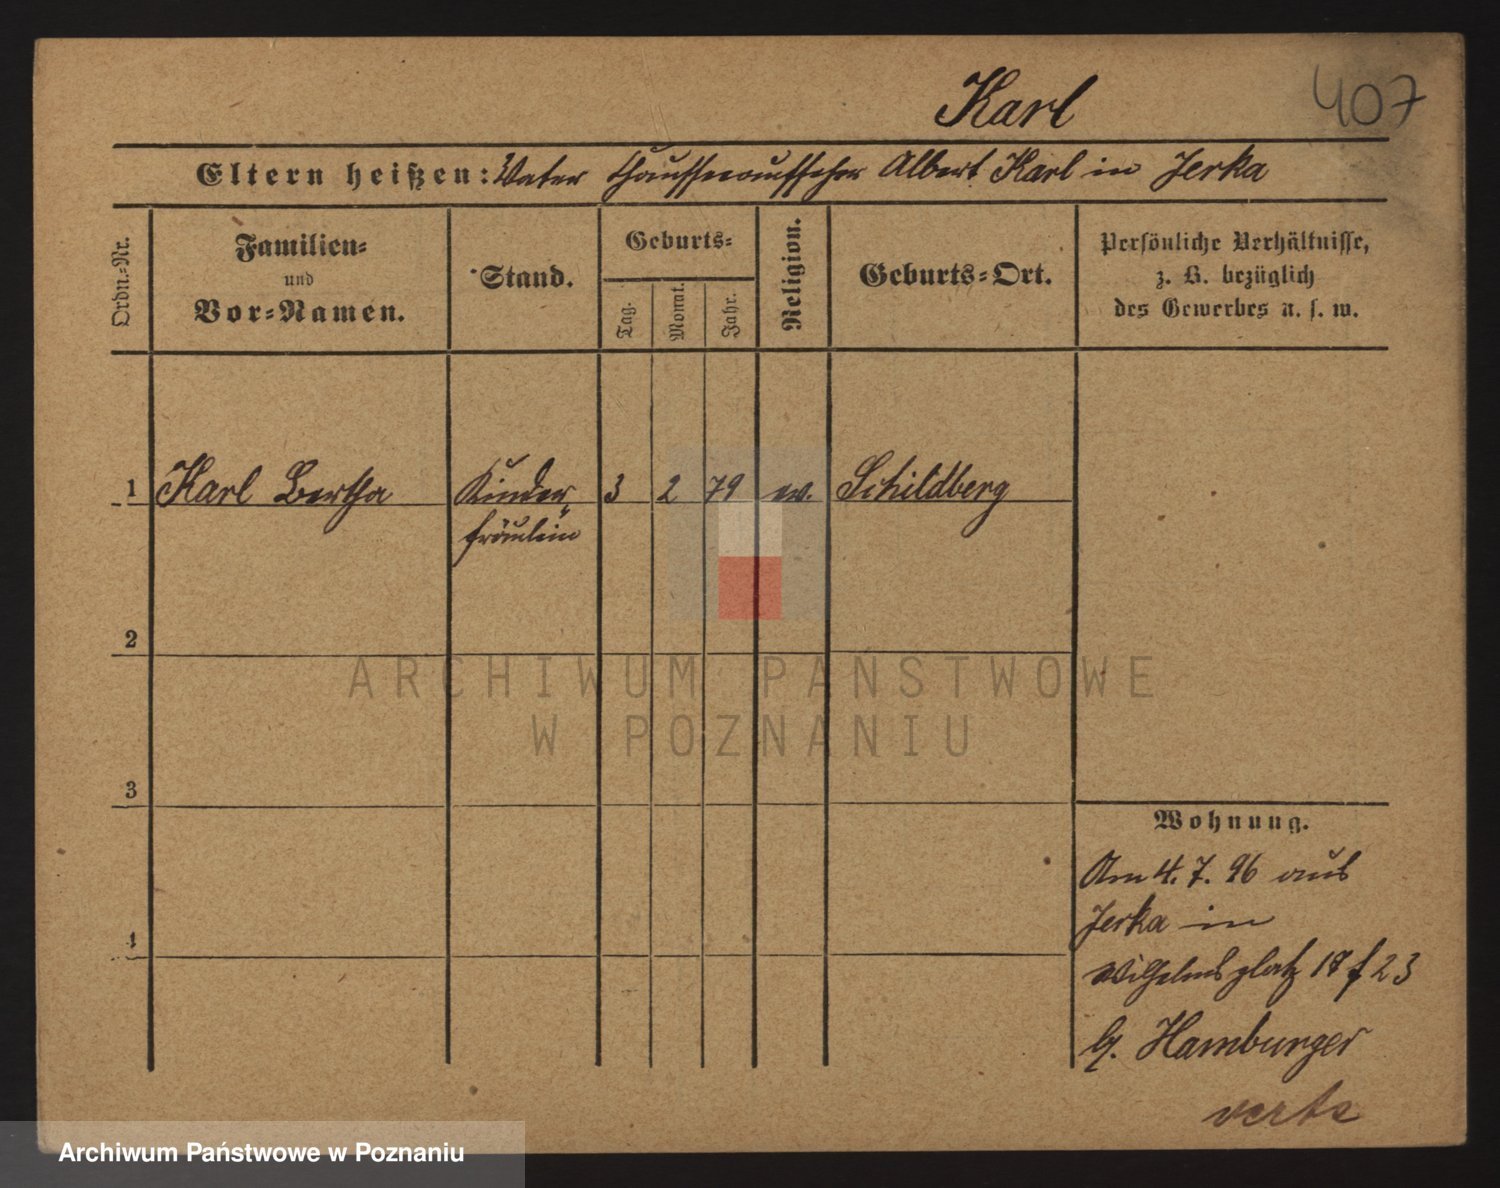 Karl
407
Eltern heißen: Vater Chausseeaufseher Albert Karl in Jerka
Ordn.-Nr.
Familien-
und
Vor-Namen.
Stand.
Geburts-
Tag.
Monat.
Jahr.
Religion.
Geburts-Ort.
Persönliche Verhältnisse,
z. B. bezüglich
des Gewerbes u. s. w.
1 Karl Bertha Kinder 3 2 79 ev. Schildberg
fräulein
2
3
4
Wohnung.
Am 4. 7. 96 aus
Jerka in
Wilhelmsplatz 18 f 23
b/. Hamburger
verte
ARCHIWUM PAŃSTWOWE
W POZNANIU
Archiwum Państwowe w Poznaniu